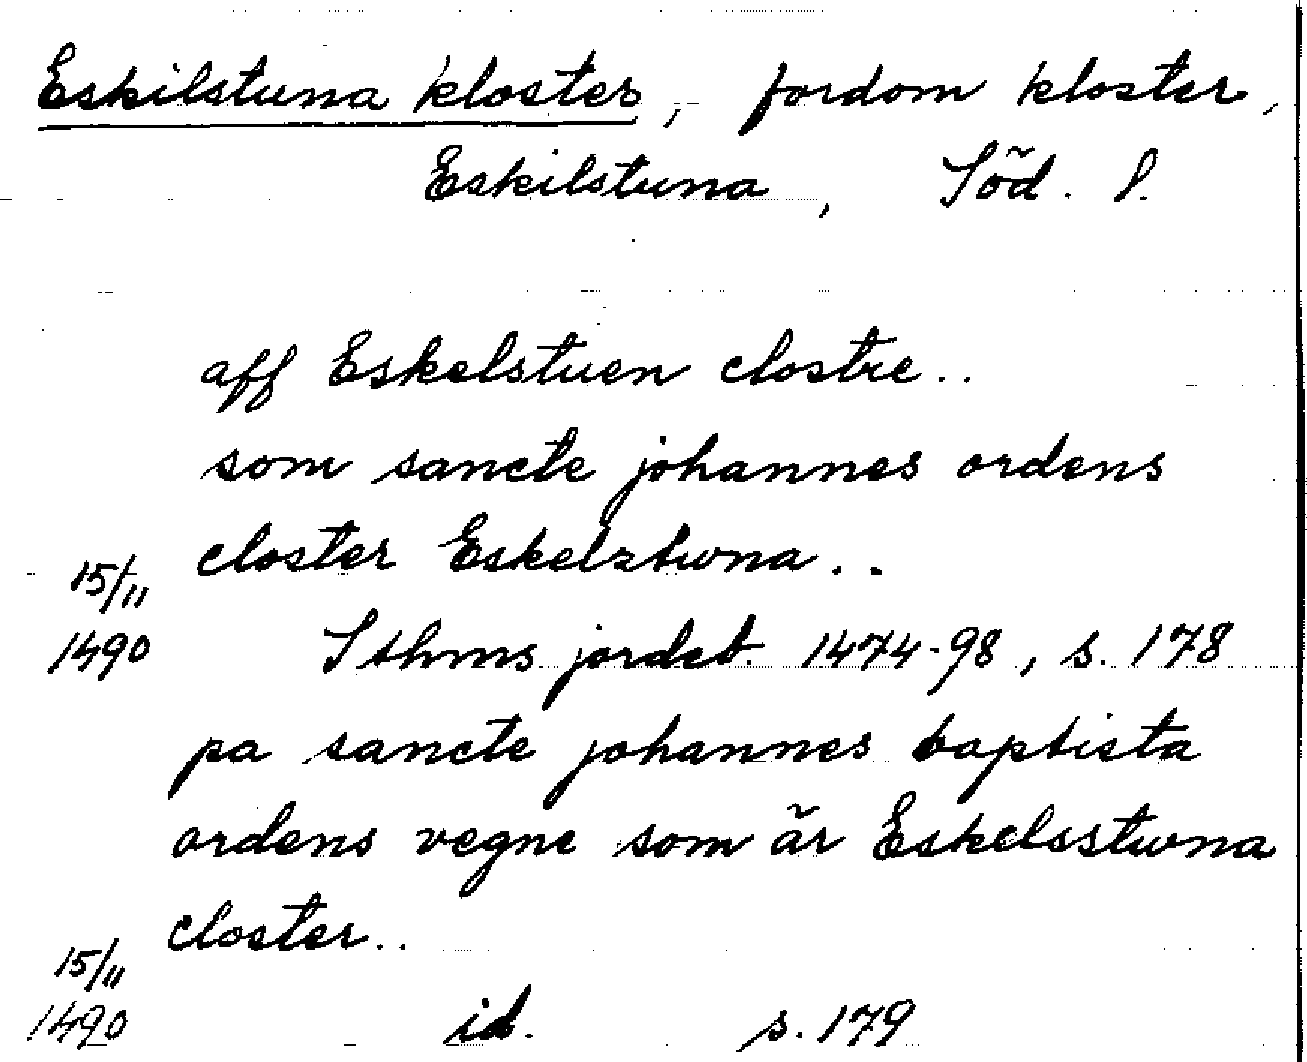 Eskilstuna kloster, fordom kloster,
Eskilstuna, Söd. l.
aff Eskelstuen clostre..
som sancte johannes ordens
closter Eskelztwna..
15/11
1490 Sthms jordeb. 1474-98, s. 178
pa sancte johannes baptista
ordens vegne som är Eskelsstwna
closter..
15/11
1490 id. s. 179